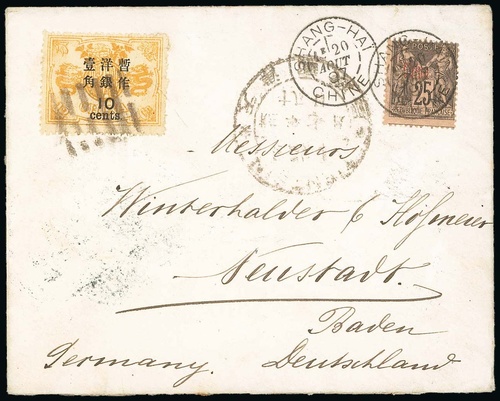 暫作
洋銀
壹角
10
cents.
SHANG-HAI
20
AOUT
97
CHINE
25
Messieurs
Winterhalder & Hofmeier
Neustadt.
Baden
Germany. Deutschland